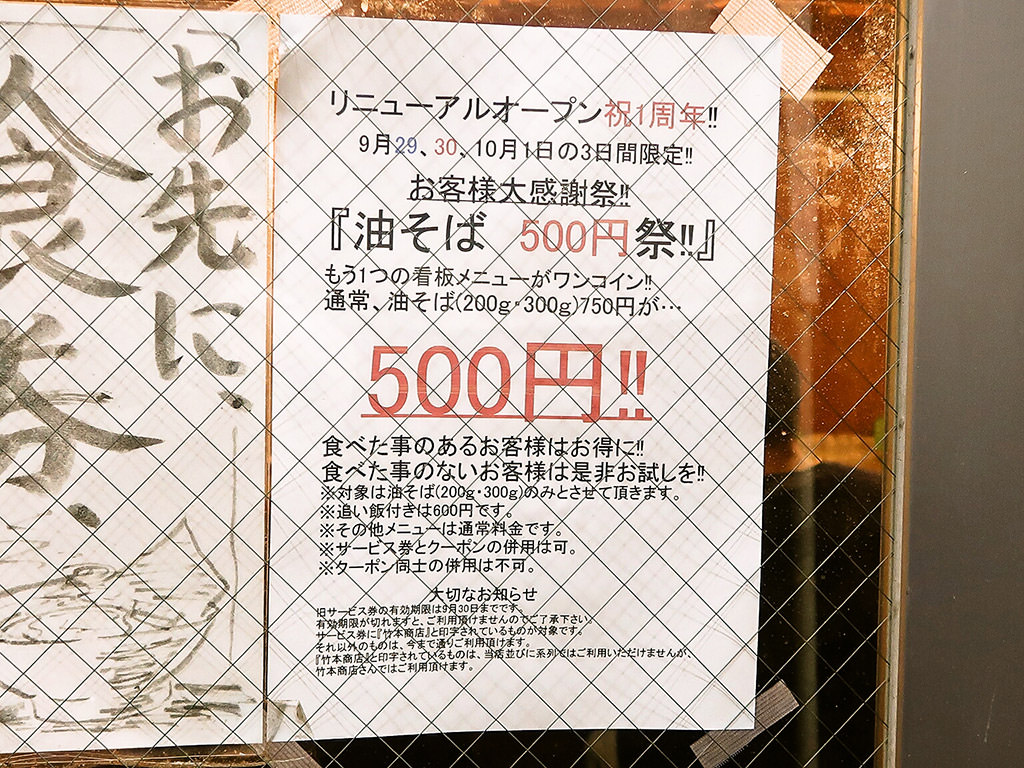 お先に、
食券、
リニューアルオープン祝1周年!!
9月29、30、10月1日の3日間限定!!
お客様大感謝祭!!
『油そば 500円祭!!』
もう1つの看板メニューがワンコイン!!
通常、油そば(200g・300g)750円が…
500円!!
食べた事のあるお客様はお得に!!
食べた事のないお客様は是非お試しを!!
※対象は油そば(200g・300g)のみとさせて頂きます。
※追い飯付きは600円です。
※その他メニューは通常料金です。
※サービス券とクーポンの併用は可。
※クーポン同士の併用は不可。
大切なお知らせ
旧サービス券の有効期限は9月30日までです。
有効期限が切れますと、ご利用頂けませんのでご了承下さい。
サービス券に『竹本商店』と印字されているものが対象です。
それ以外のものは、今まで通りご利用頂けます。
『竹本商店』と印字されているものは、当店並びに系列ではご利用いただけませんが、
竹本商店さんではご利用頂けます。